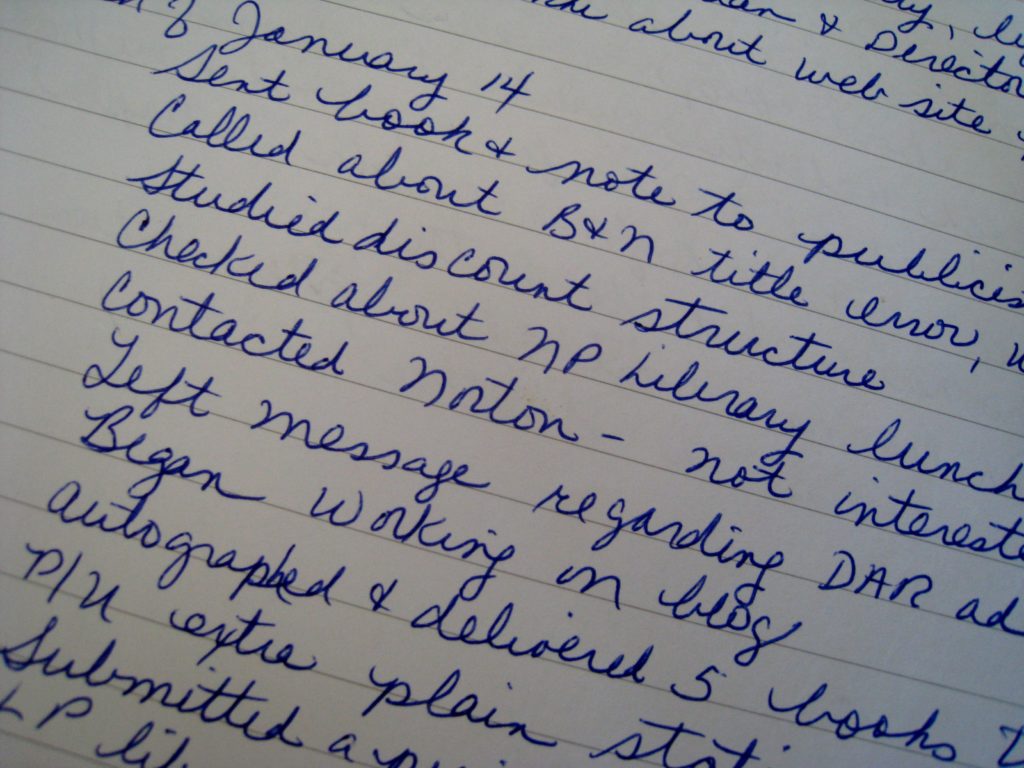 & Director
about web site
of January 14
Sent book & note to publicis
Called about B&N title error,
Studied discount structure
Checked about NP Library lunch
Contacted Norton - not intereste
Left message regarding DAR ad
Began working on blog
Autographed & delivered 5 books
P/U extra plain stati
Submitted a
LP lib